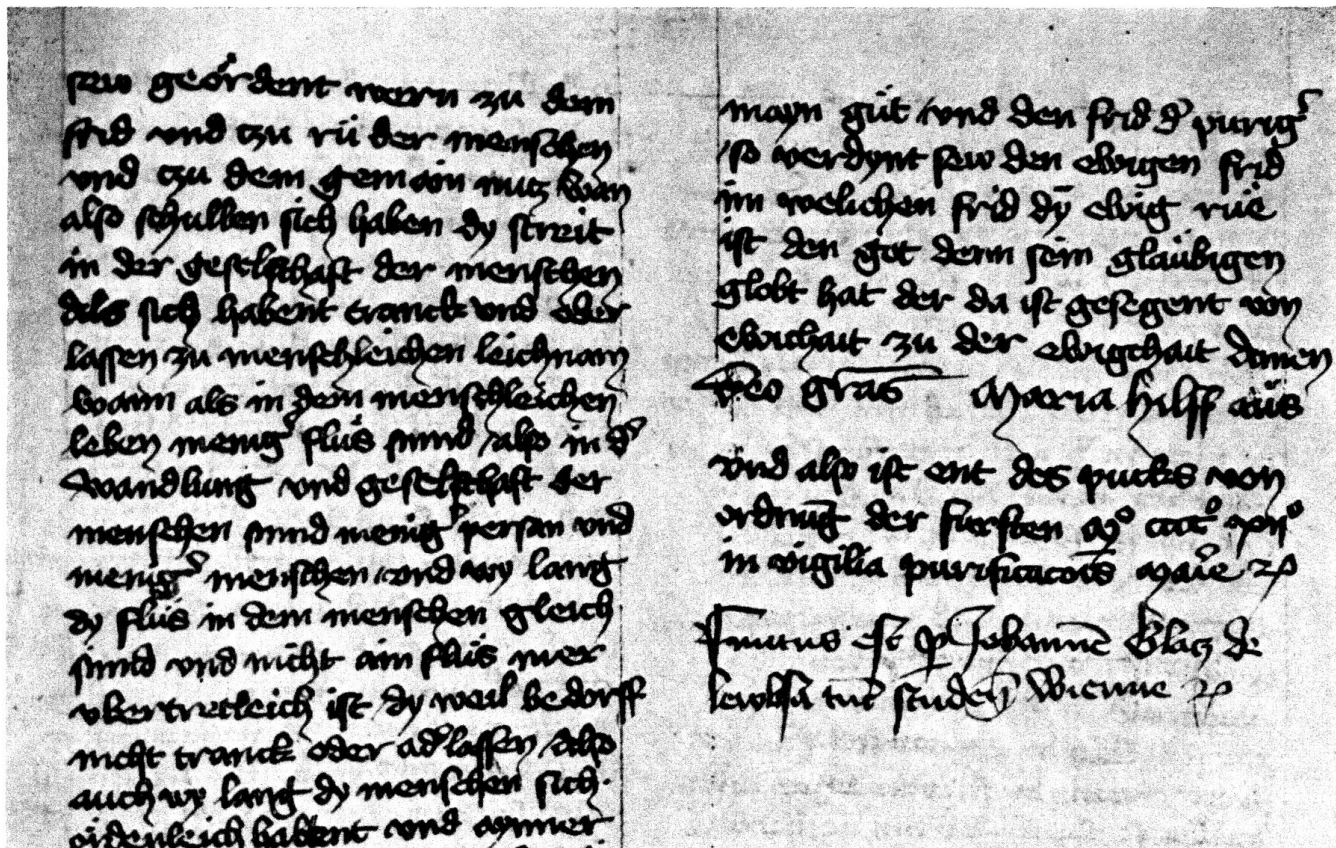 sew geördent wern zu dem
frid vnd tzu rü der menschen
vnd tzu dem gemain nutz wan
also schullen sich haben dy streit
in der geselschaft der menschen
als sich habent tranck vnd oder
lassen zu menschleichen leichnam
wann als in dem menschleichen
leben menig flüs sinnd also in d
wandlung vnd geselschaft der
menschen sinnd menig person vnd
menig menschen vnd wy lang
dy flüs in dem menschen gleich
sinnd vnd nicht ain flüs mer
vbertretleich ist dy weil bedorff
nicht tranck oder ad lassen Also
auch wy lang dy menschen sich
ördenleich habent vnd aynner
mayn güt vnd den frid d purig
so verdynt sew den ewigen frid
im welichen frid dy ewig rüe
ist den got denn sein glaübigen
globt hat der da ist gesegent von
ewichait zu der ewigchait Amen
Deo gras Maria hilff aüs
vnd also ist ent des puches von
ordnung der fursten
in vigilia purificacois Marie
Finitus est p Johannem de
tunc studen Wienne